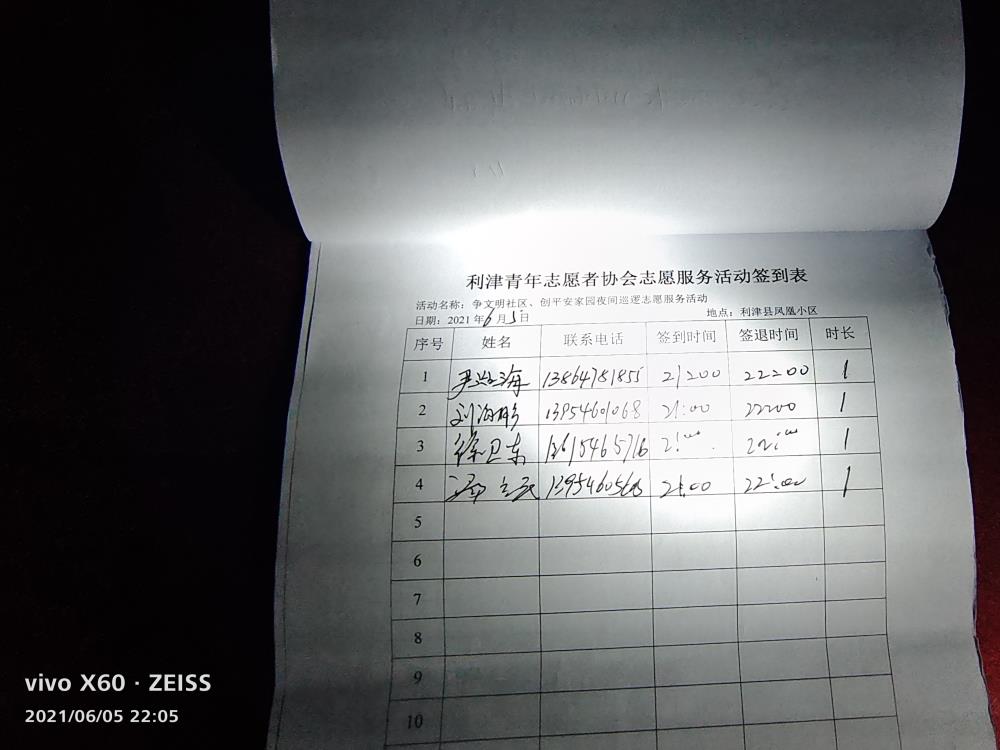 利津青年志愿者协会志愿服务活动签到表
活动名称：争文明社区、创平安家园夜间巡逻志愿服务活动
日期：2021年6月5日 地点：利津县凤凰小区
序号 姓名 联系电话 签到时间 签退时间 时长
1 海 13864781855 21:00 22:00 1
2 刘海彬 13954601068 21:00 22:00 1
3 徐卫东 13615465716 21:00 22:00 1
4 21:00 22:00 1
5
6
7
8
9
10
vivo X60 · ZEISS
2021/06/05 22:05